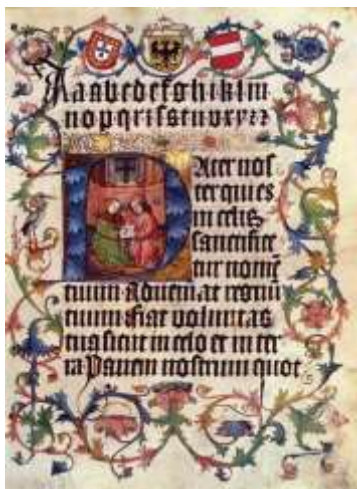 Aaabcdefghiklm
nopqrrſstuvxyzz
PAter noſ
ter qui es
in celis
sanctifice
tur nomē
tuum Adueniat regnū
tuum fiat voluntas
tua sicut in celo et in ter
ra Panem nostrum quot